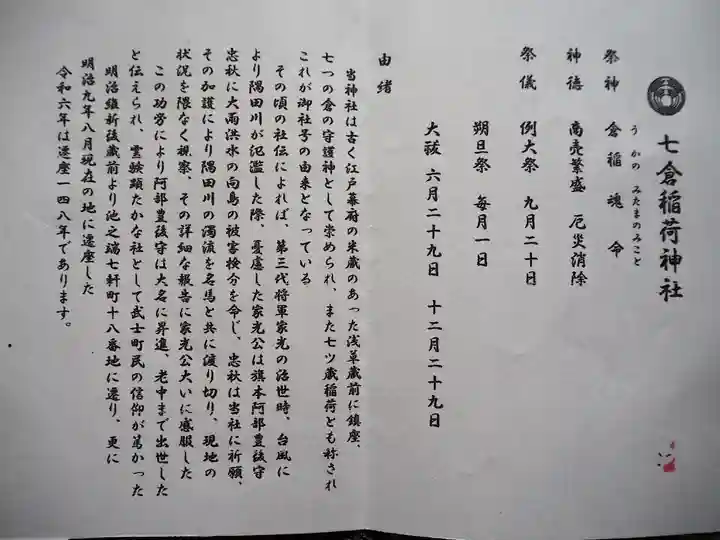 七倉稲荷神社
祭神 倉稲魂命
うかのみたまのみこと
神徳 商売繁盛 厄災消除
祭儀 例大祭 九月二十日
朔旦祭 毎月一日
大祓 六月二十九日 十二月二十九日
由緒
当神社は古く江戸幕府の米蔵のあった浅草蔵前に鎮座、
七つの倉の守護神として崇められ、また七ツ蔵稲荷とも称され
これが御社号の由来となっている
その頃の社伝によれば、第三代将軍家光の治世時、台風に
より隅田川が氾濫した際、憂慮した家光公は旗本阿部豊後守
忠秋に大雨洪水の向島の被害検分を命じ、忠秋は当社に祈願、
その加護により隅田川の濁流を名馬と共に渡り切り、現地の
状況を隈なく視察、その詳細な報告に家光公大いに感服した
この功労により阿部豊後守は大名に昇進、老中まで出世した
と伝えられ、霊験顕たかな社として武士町民の信仰が篤かった
明治維新後蔵前より池之端七軒町十八番地に遷り、更に
明治九年八月現在の地に遷座した
令和六年は遷座一四八年であります。